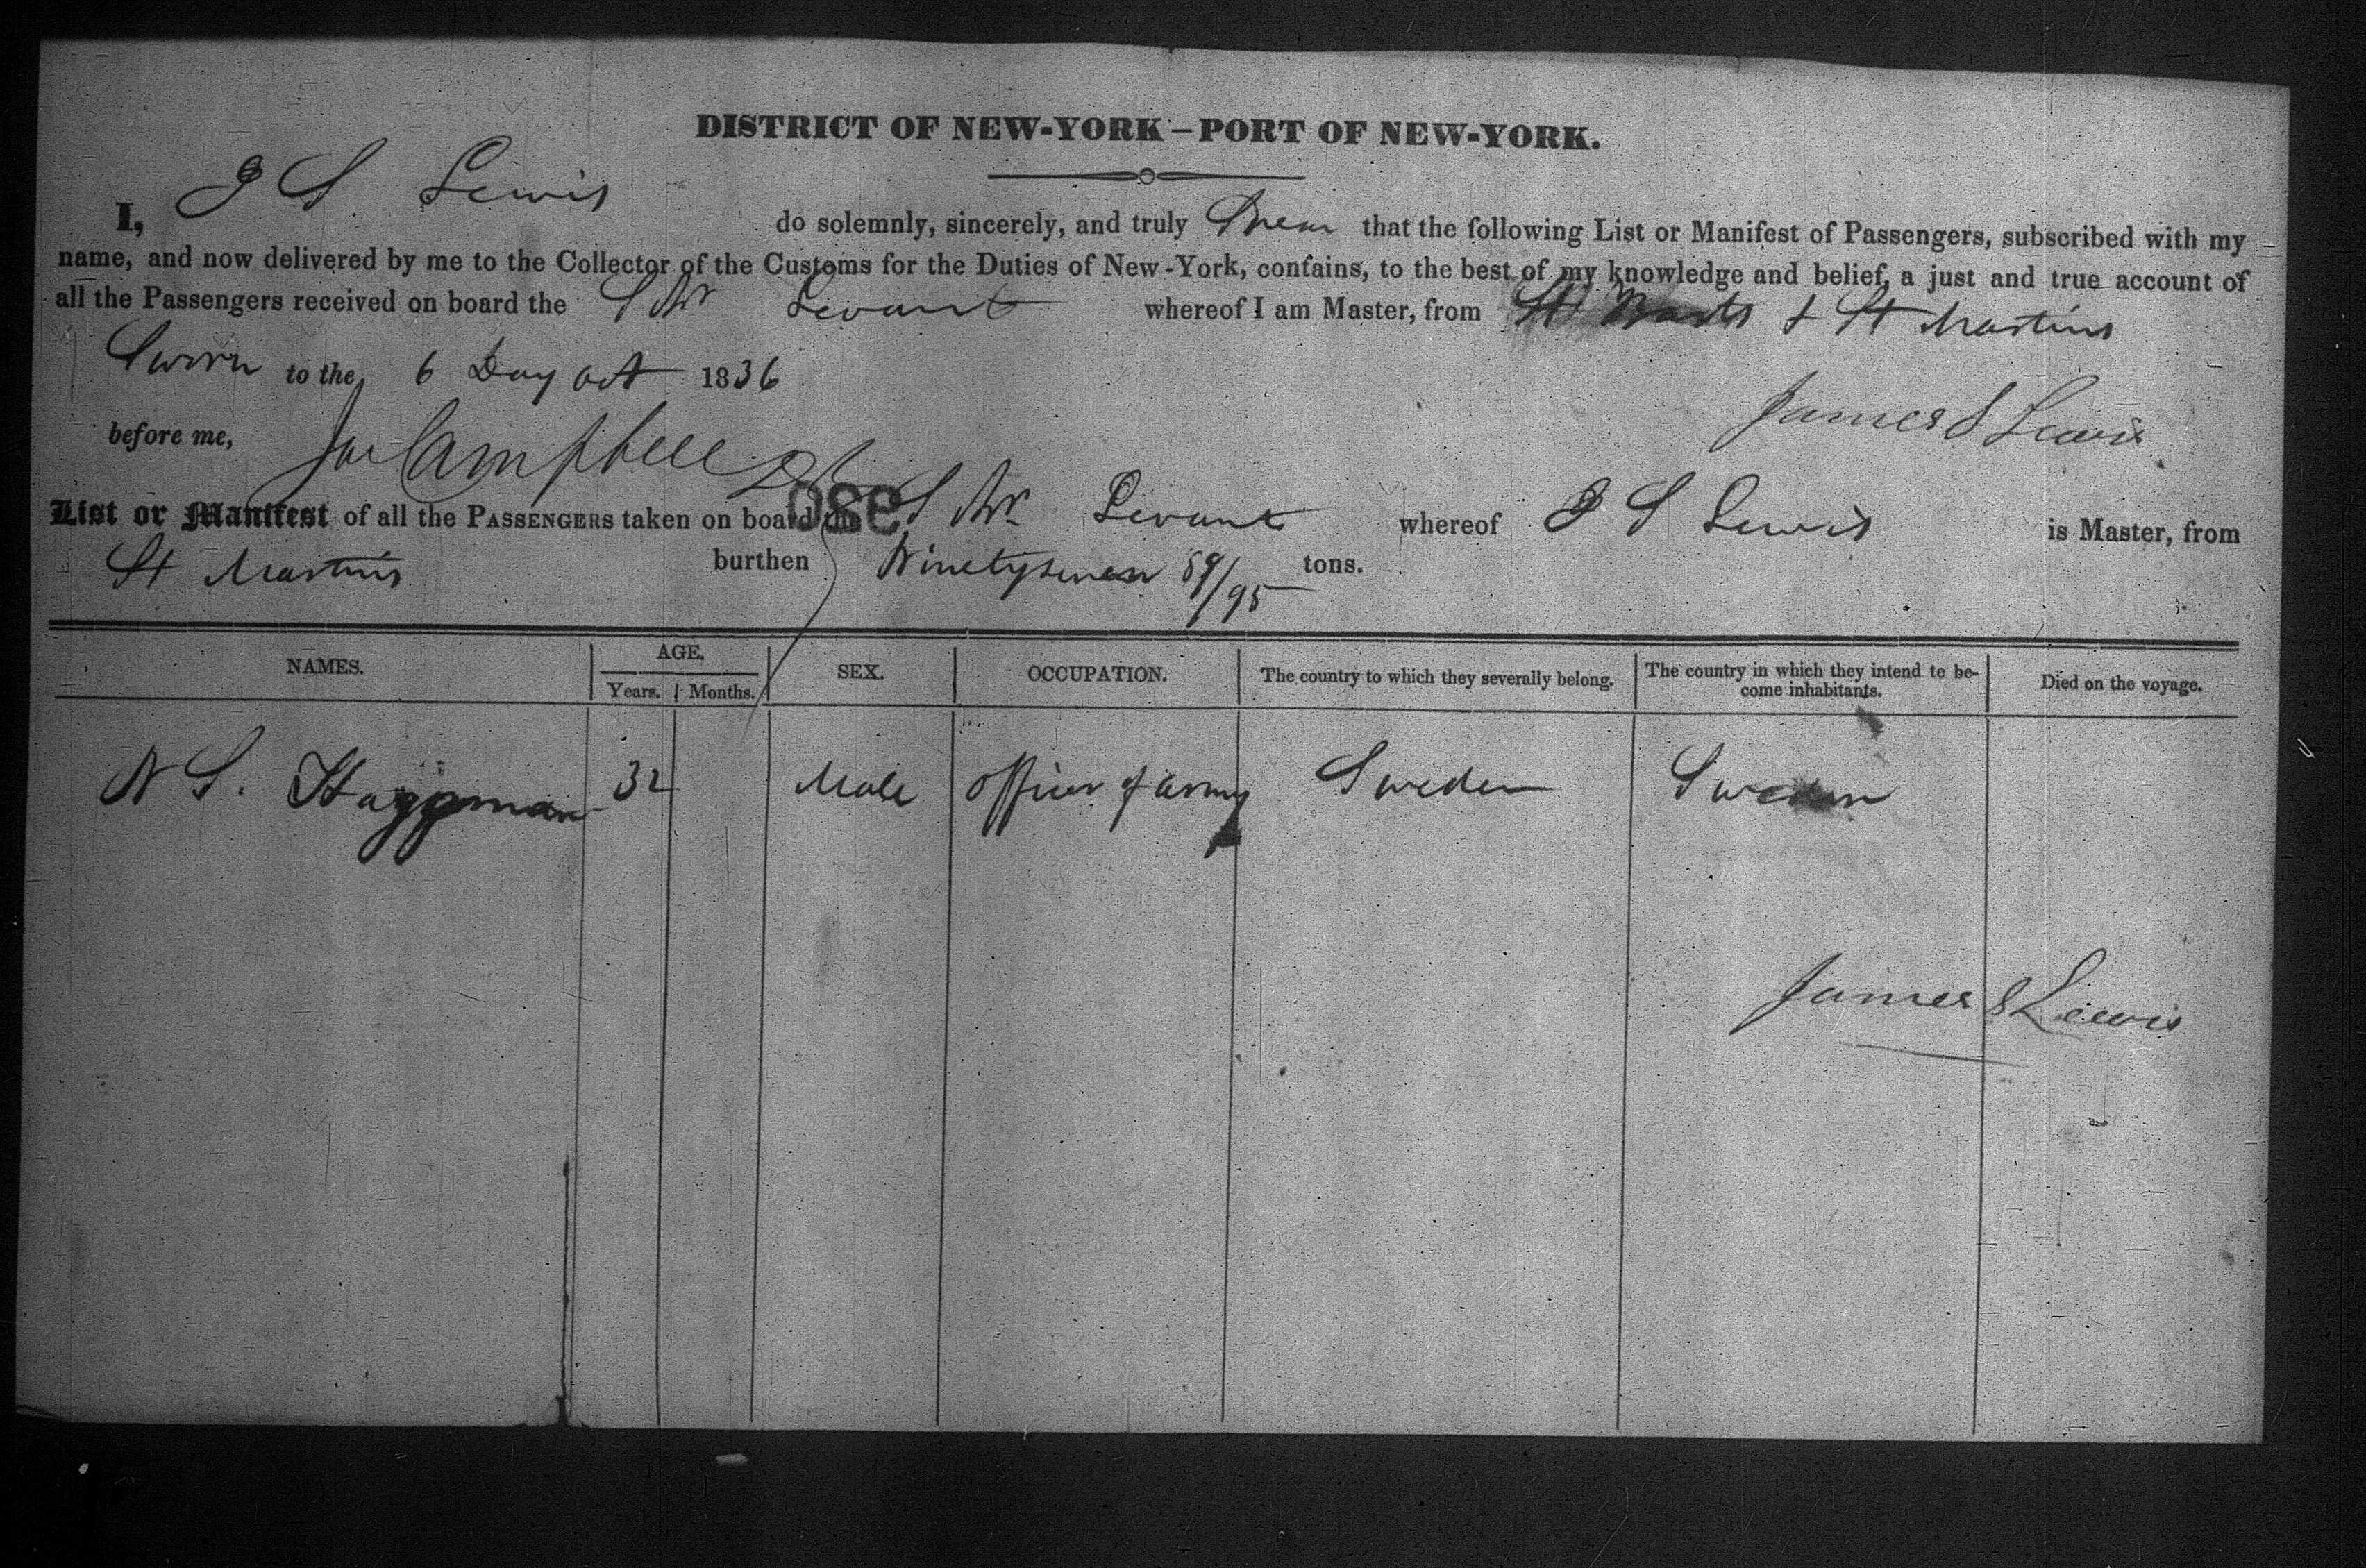 DISTRICT OF NEW-YORK – PORT OF NEW-YORK.
I, J S Lewis do solemnly, sincerely, and truly Swear that the following List or Manifest of Passengers, subscribed with my
name, and now delivered by me to the Collector of the Customs for the Duties of New-York, contains, to the best of my knowledge and belief, a just and true account of
all the Passengers received on board the Schr Levant whereof I am Master, from St Barts & St Martins
Sworn to the 6 Day Oct 1836
James S Lewis
before me, Campbell
List or Manifest of all the PASSENGERS taken on board the Schr Levant whereof J S Lewis is Master, from
980
St Martins burthen Ninetyseven 89/95 tons.
NAMES. AGE. Years. Months. SEX. OCCUPATION. The country to which they severally belong. The country in which they intend te become inhabitants. Died on the voyage.
N S. Haggman 32 Male officer of army Sweden Sweden
James S Lewis